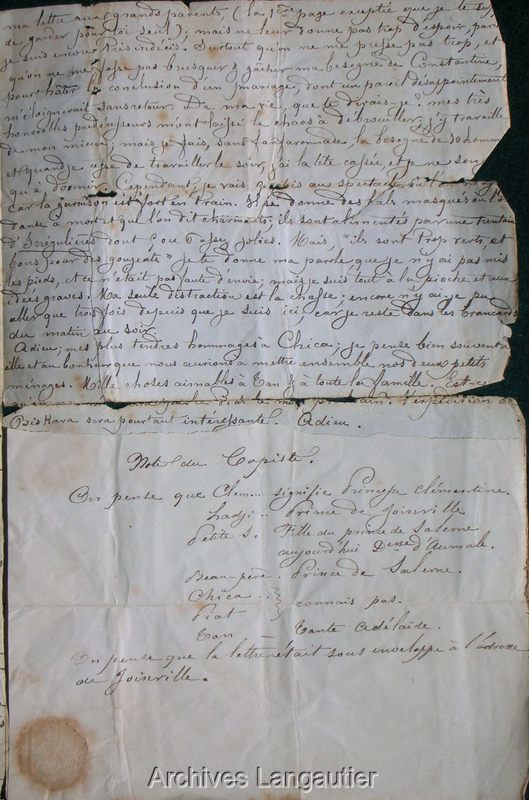 ma lettre aux grands parents, (la 1ère page exceptée que je te
de garder pour toi seul); mais ne leur donne pas trop d'espoir, parce
je suis encore très indécis. Surtout qu'on ne me presse pas trop, et
qu'on ne me fasse pas brusquer & gâcher ma besogne de Constantine,
pour hâter conclusion d'un mariage, dont un pareil désappointement
m'éloignerait sans retour. De ma vie, que te dirais-je? mes très
honorables prédécesseurs m'ont laissé le chaos à débrouiller, j'y travaille
de mon mieux; mais je fais, sans fanfaronade, la besogne de 10 hommes
et quand je cesse de travailler le soir, j'ai la tête cassée, et je ne songe
qu'à dormir. Cependant, je vais quelquefois au spectacle
car la garnison est fort en train. Il se donne des bals masqués où l'on
danse à mort et qu'on dit charmants; ils sont alimentés par une trentaine
d'Irrégulières dont 5 ou 6 assez jolies. Mais, "ils sont trop verts, et
bons pour des goujats" je te donne ma parole que je n'y ai pas mis
les pieds, et ce n'était pas faute d'envie; mais je suis tout à la pioche et aux
idées graves. Ma seule distraction est la chasse; encore n'y ai-je pu
aller que trois fois depuis que je suis ici, car je reste dans les brancards
du matin au soir.
Adieu; mes plus tendres hommages à Chica; je pense bien souvent à
elle et au bonheur que nous aurions à mettre ensemble nos deux petits
ménages. Mille choses aimables à Tan & à toute la famille. Est-ce
L'expédition de
Biskara sera pourtant intéressante. Adieu.
Note du Copiste.
On pense que Clem... signifie Princesse Clémentine.
hadji .. Prince de Joinville
Petite S. Fille du prince de Salerne
aujourd'hui Dsse d'Aumale.
Beau-père. Prince de Salerne.
Chica ..
Piat } connais pas.
Tan – Tante Adélaïde.
On pense que la lettre était sous enveloppe à l'adresse
de Joinville.
Archives Langautier